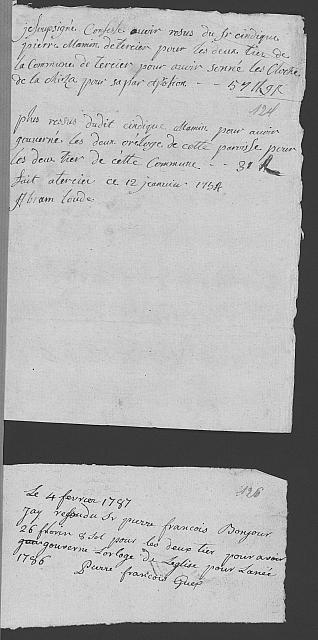 jesousigné Confesse avoir resus du Sr cindique
pierre Mamin de tercier pour les deux tier de
la Commune de tercier pour avoir sonné les Cloche
de la
pour sa par et portion - - 57
124
plus ressus dudit cindique Mamin pour avoir
gouverné les deux orologe de cette paroisse pour
les deux tier de cette Commune - - 31
fait a tercier ce 12 jeanvier
Abram loude
126
Le 4 fevrier 1787
Jay resu du Sr pierre francois Bonjour
26 florin 8 Sol pour les deux tier pour avoir
gouverne Lorloge de Leglise pour Lanée
1786
Pierre francois Guex